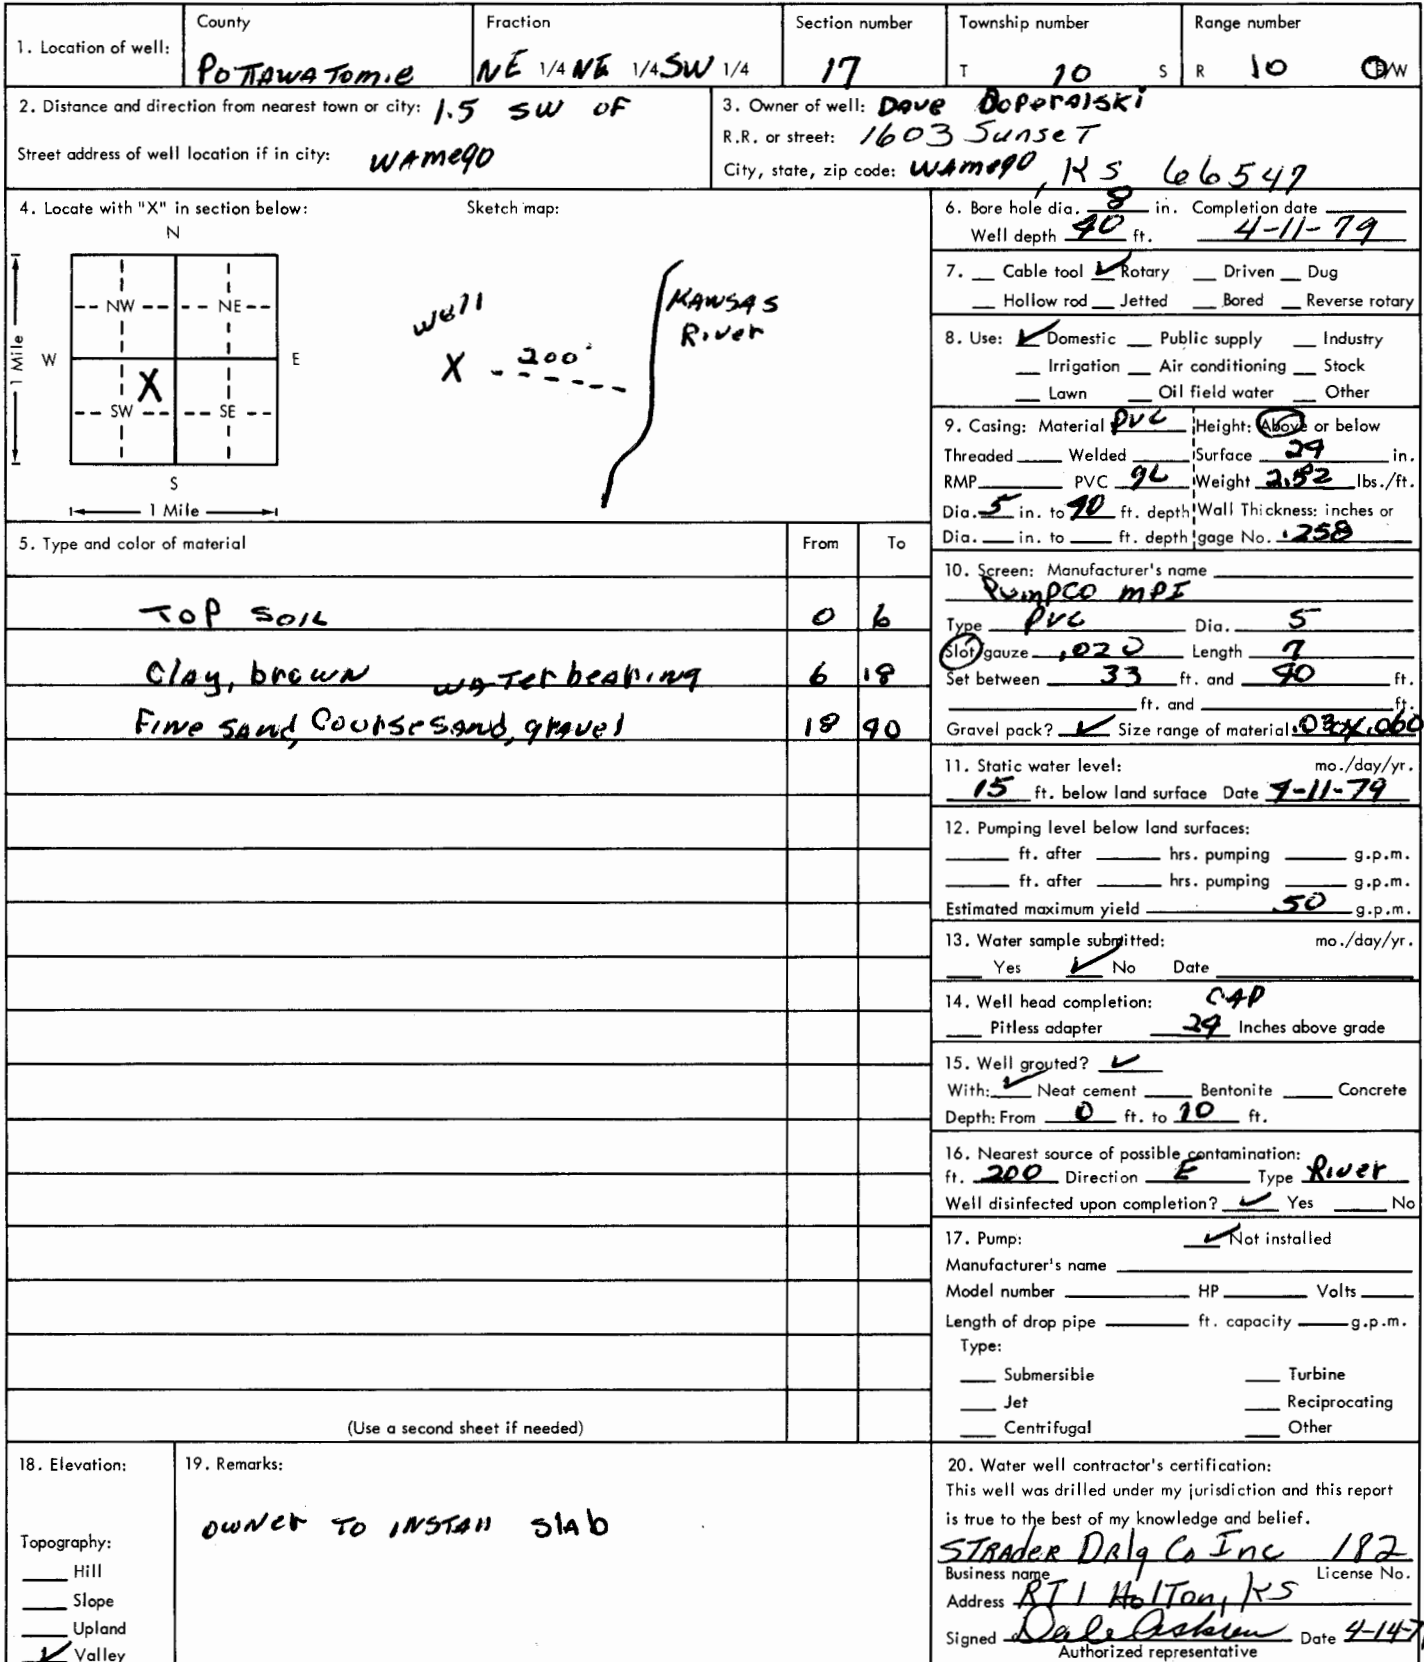 County Fraction Section number Township number Range number
1. Location of well: POTTAWATOMIE NE 1/4 NE 1/4 SW 1/4 17 T 10 S R 10 E/W
2. Distance and direction from nearest town or city: 1.5 SW OF
Street address of well location if in city: WAMego
3. Owner of well: DAVE DOPERALSKI
R.R. or street: 1603 Sunset
City, state, zip code: WAMego, KS 66547
4. Locate with "X" in section below: Sketch map:
N
NW NE
W E
X
SW SE
S
1 Mile
1 Mile
well
X 200'
KANSAS
River
5. Type and color of material From To
TOP SOIL 0 6
Clay, brown WATER bearing 6 18
Fine SAND, Course sand, gravel 18 40
(Use a second sheet if needed)
6. Bore hole dia. 8 in. Completion date
Well depth 40 ft. 4-11-79
7. Cable tool ✓ Rotary Driven Dug
Hollow rod Jetted Bored Reverse rotary
8. Use: ✓ Domestic Public supply Industry
Irrigation Air conditioning Stock
Lawn Oil field water Other
9. Casing: Material PVC Height: Above or below
Threaded Welded Surface 24 in.
RMP PVC gL Weight 2.82 lbs./ft.
Dia. 5 in. to 40 ft. depth Wall Thickness: inches or
Dia. in. to ft. depth gage No. .258
10. Screen: Manufacturer's name
PUMPCO MPI
Type PVC Dia. 5
Slot/gauze .020 Length 7
Set between 33 ft. and 40 ft.
ft. and ft.
Gravel pack? ✓ Size range of material .030X.060
11. Static water level: mo./day/yr.
15 ft. below land surface Date 4-11-79
12. Pumping level below land surfaces:
ft. after hrs. pumping g.p.m.
ft. after hrs. pumping g.p.m.
Estimated maximum yield 50 g.p.m.
13. Water sample submitted: mo./day/yr.
Yes ✓ No Date
14. Well head completion: CAP
Pitless adapter 24 Inches above grade
15. Well grouted? ✓
With: ✓ Neat cement Bentonite Concrete
Depth: From 0 ft. to 10 ft.
16. Nearest source of possible contamination:
ft. 200 Direction E Type River
Well disinfected upon completion? ✓ Yes No
17. Pump: ✓ Not installed
Manufacturer's name
Model number HP Volts
Length of drop pipe ft. capacity g.p.m.
Type:
Submersible Turbine
Jet Reciprocating
Centrifugal Other
18. Elevation:
Topography:
Hill
Slope
Upland
✓ Valley
19. Remarks:
OWNER TO INSTALL SlAb
20. Water well contractor's certification:
This well was drilled under my jurisdiction and this report
is true to the best of my knowledge and belief.
STRADER DRlg Co Inc 182
Business name License No.
Address RT 1 Holton, KS
Signed Dale Date 4-14-7
Authorized representative